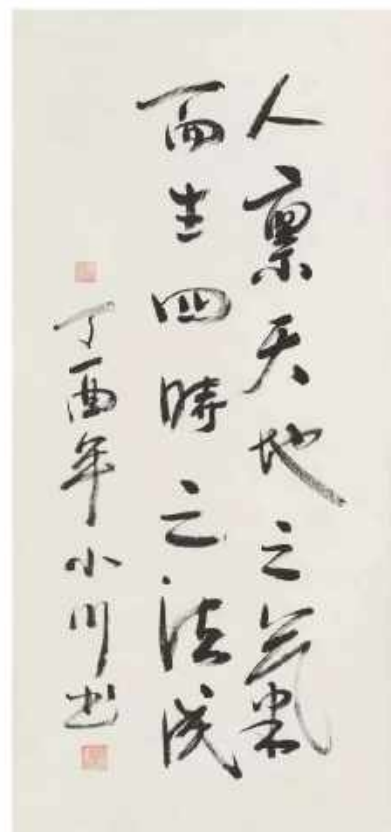 人禀天地之氣
而生四時之法成
丁酉年小川书